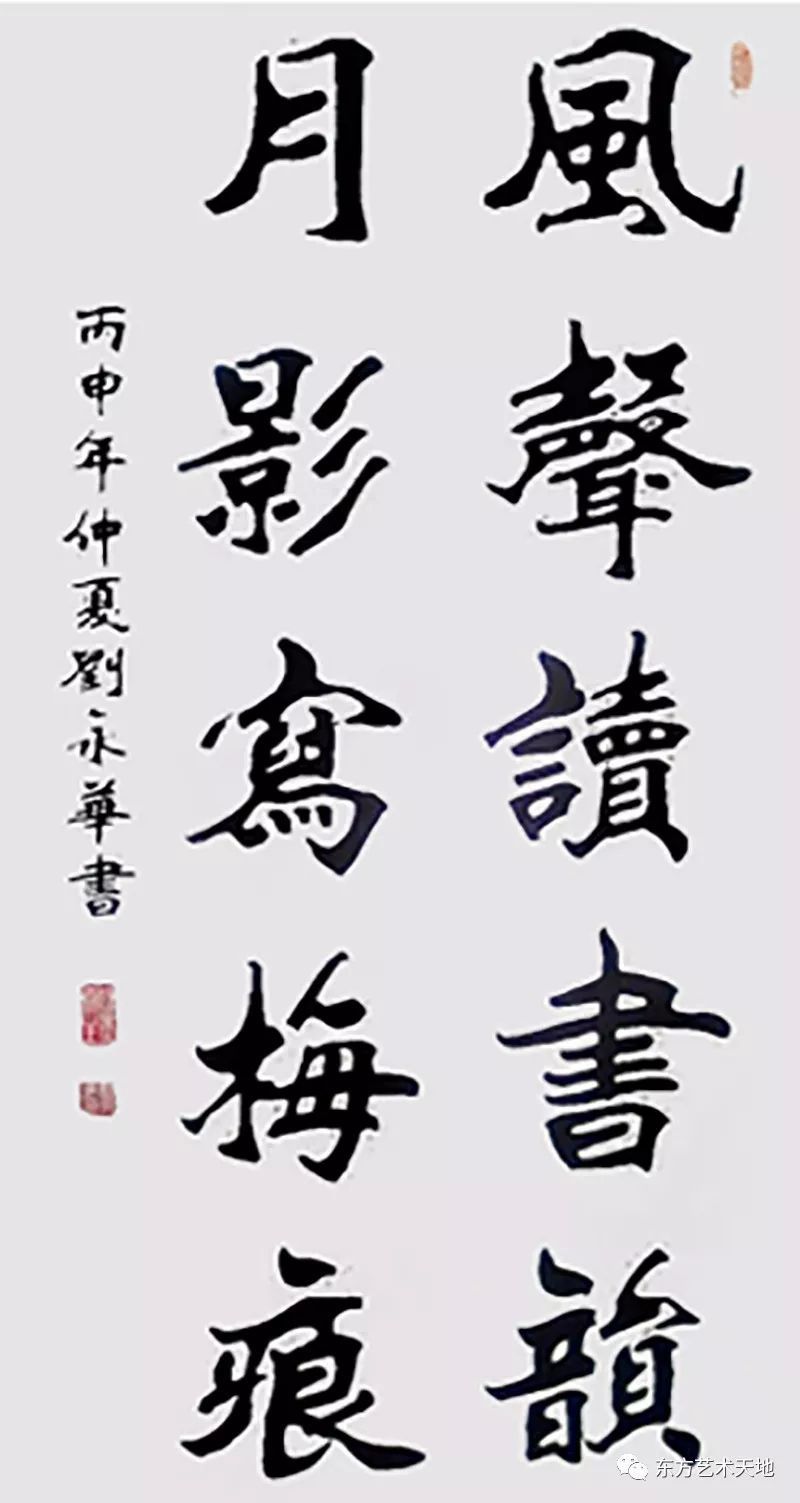 風聲讀書韻
月影寫梅痕
丙申年仲夏劉永華書
东方艺术天地